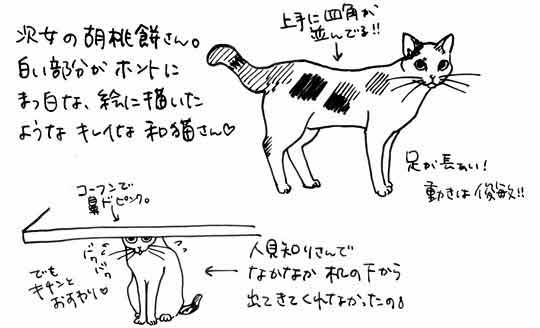 次女の胡桃餅さん。
白い部分がホントに
まっ白な、絵に描いた
ようなキレイな和猫さん♡
上手に四角が
並んでる!!
足が長ぁい!
動きは俊敏!!
コーフンで
鼻ドピンク。
ドクドク
でも
キチンと
おすわり♡
人見知りさんで
なかなか机の下から
出てきてくれなかったの。